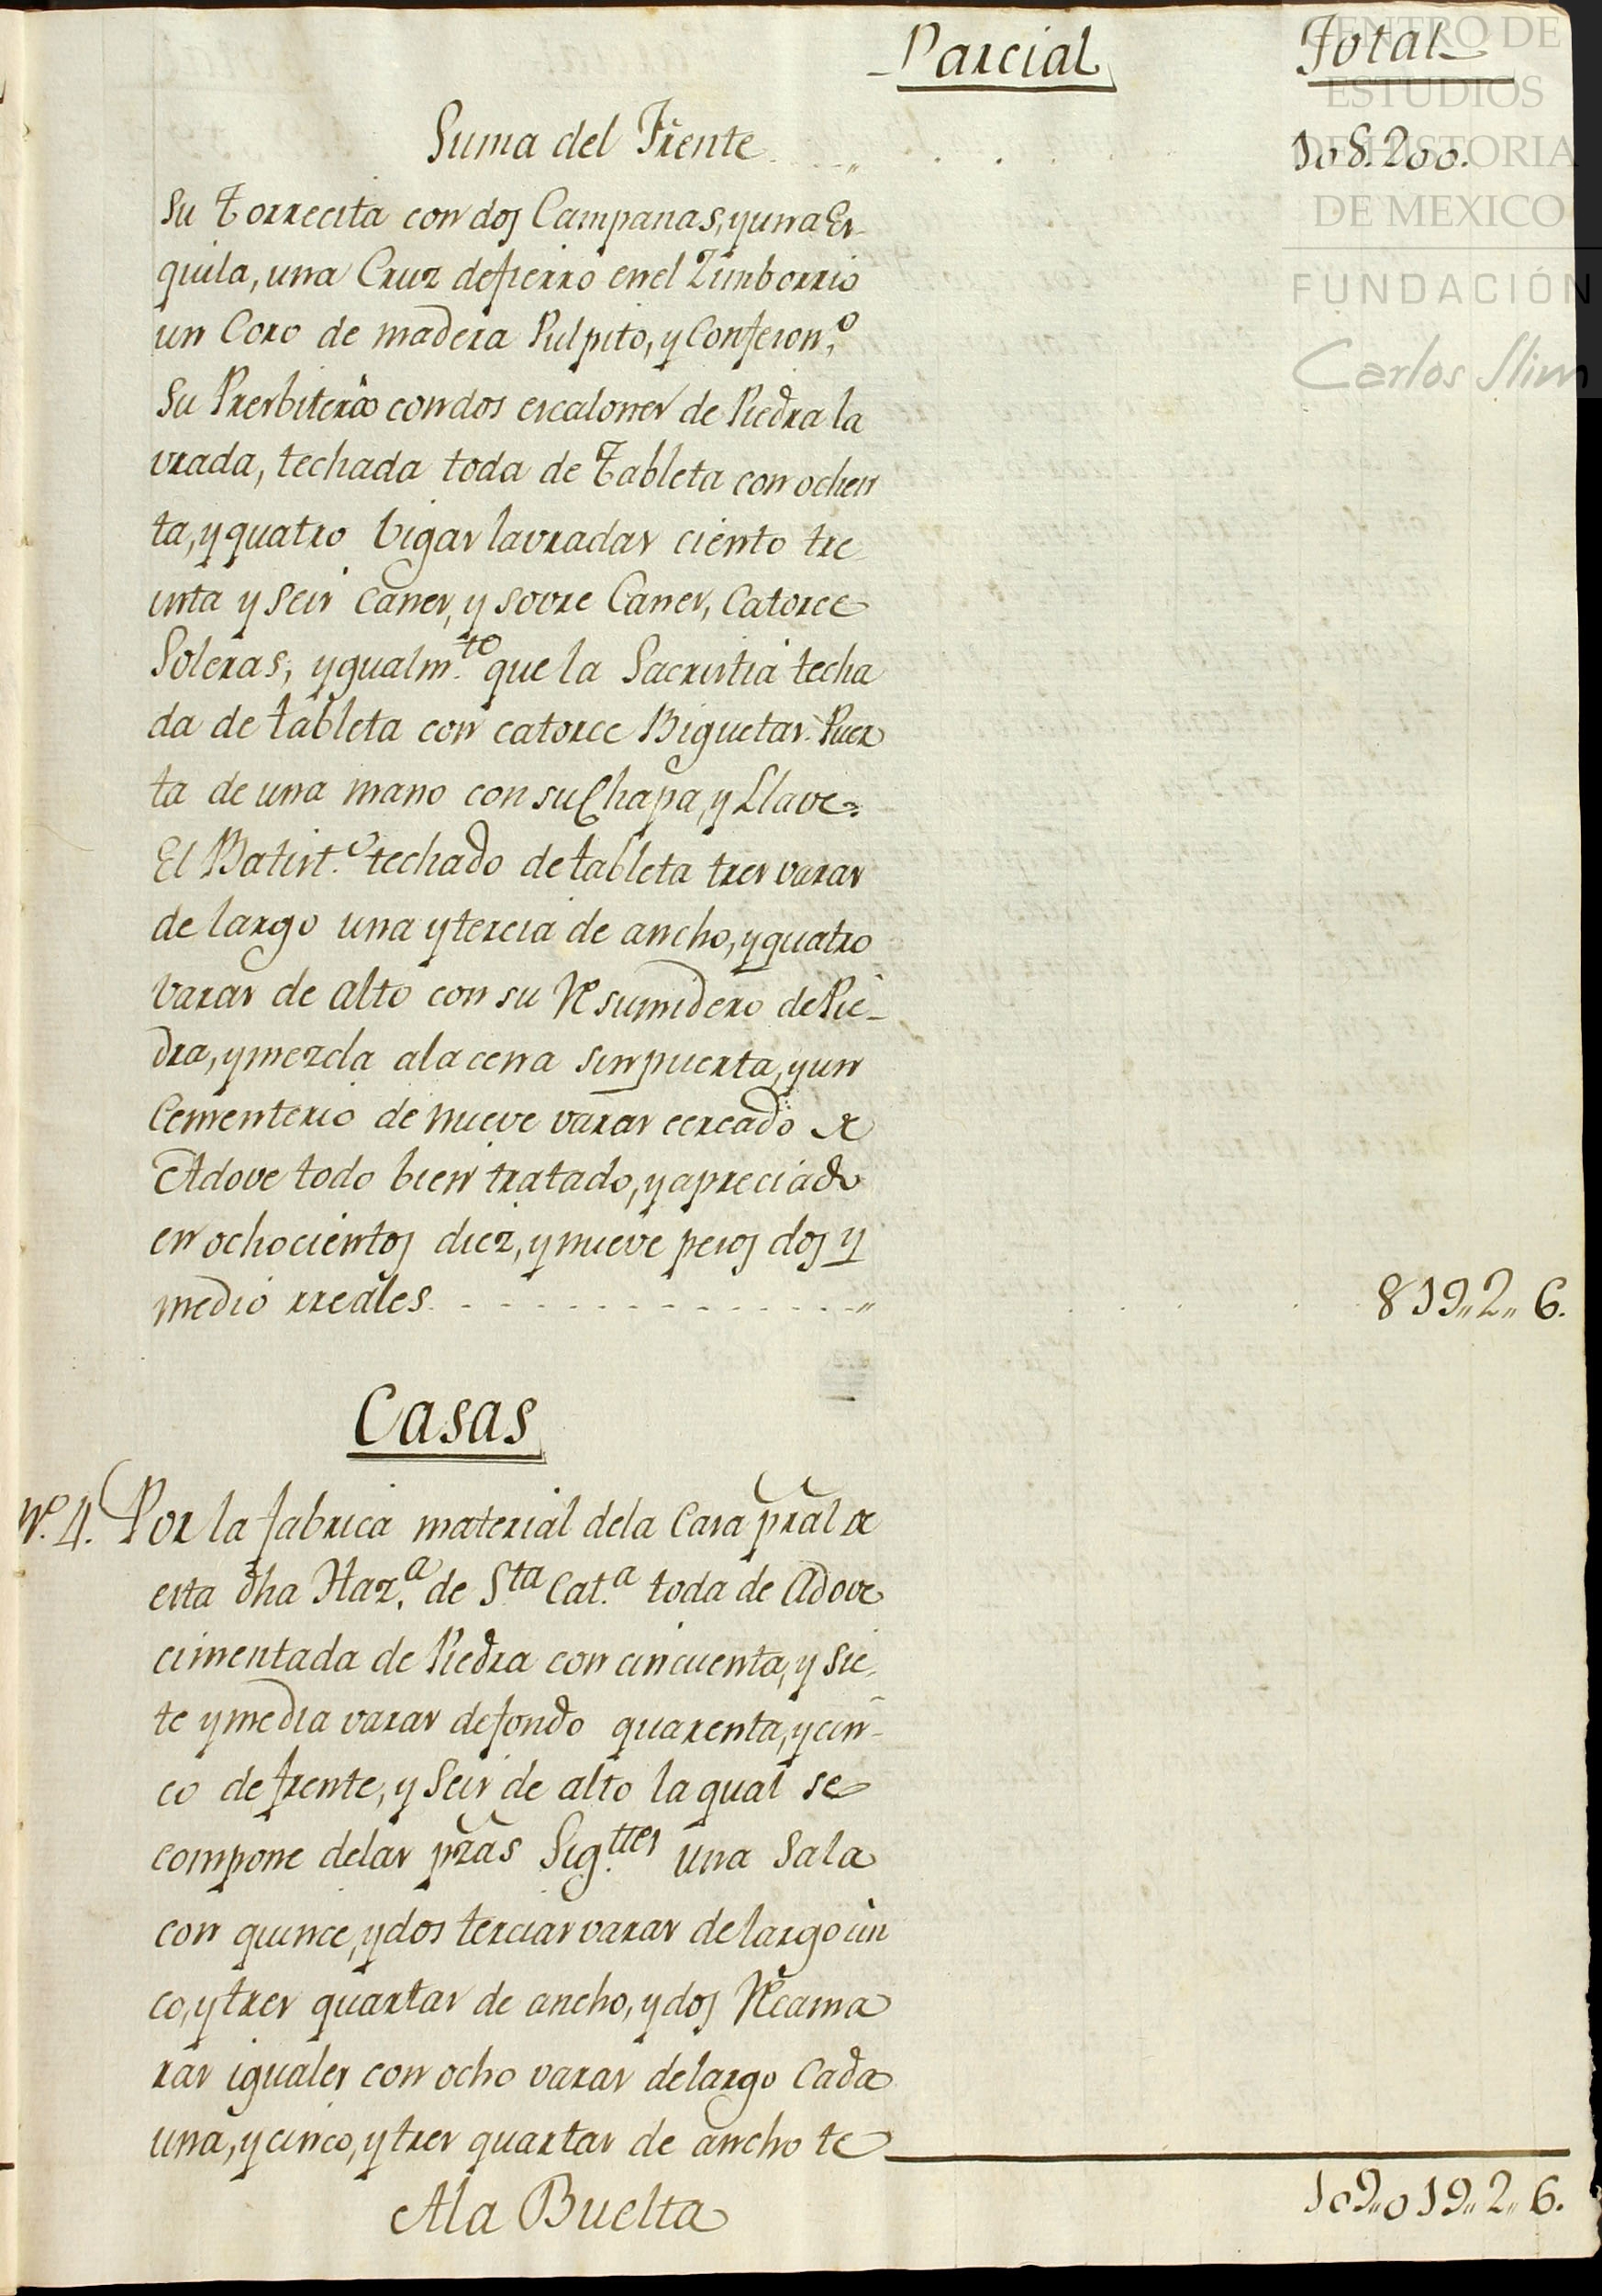 Parcial Total
Suma del Frente 108.200.
Su Torrecita con dos Campanas, y una Es-
quila, una Cruz de fierro en el Zimborrio
un Coro de madera Pulpito, y Confeson.o
Su Presbiterio con dos escalones de Piedra la
vrada, techada toda de Tableta con ochen
ta, y quatro bigas lavradas ciento tre
inta y seis canes, y sovre Canes, Catorce
Soleras, ygualm.te que la Sacristia techa
da de tableta con catorce Biguetas. Puer
ta de una mano con su Chapa, y Llave.
El Batist.o techado de tableta tres varas
de largo una y tercia de ancho, y quatro
varas de alto con su Resumidero de Pie-
dra, y mezcla alacena sin puerta, y un
Cementerio de nueve varas cercado de
Adove todo bien tratado, y apreciado
en ochocientos diez, y nueve pesos dos y
medio rreales 819,,2,,6.
Casas
N.o 4. Por la fabrica material de la Casa pral de
esta dha Haz.a de Sta Cat.a toda de Adove
cimentada de Piedra con cincuenta, y sie
te y media varas de fondo quarenta, y cin-
co de frente, y seis de alto la qual se
compone de las pzas Sig.ttes una Sala
con quince, y dos tercias varas de largo cin
co, y tres quartas de ancho, y dos Recama
ras iguales con ocho varas de largo Cada
una, y cinco, y tres quartas de ancho te
A la Buelta 109,,019,,2,,6.
CENTRO DE
ESTUDIOS
DE HISTORIA
DE MEXICO
FUNDACIÓN
Carlos Slim